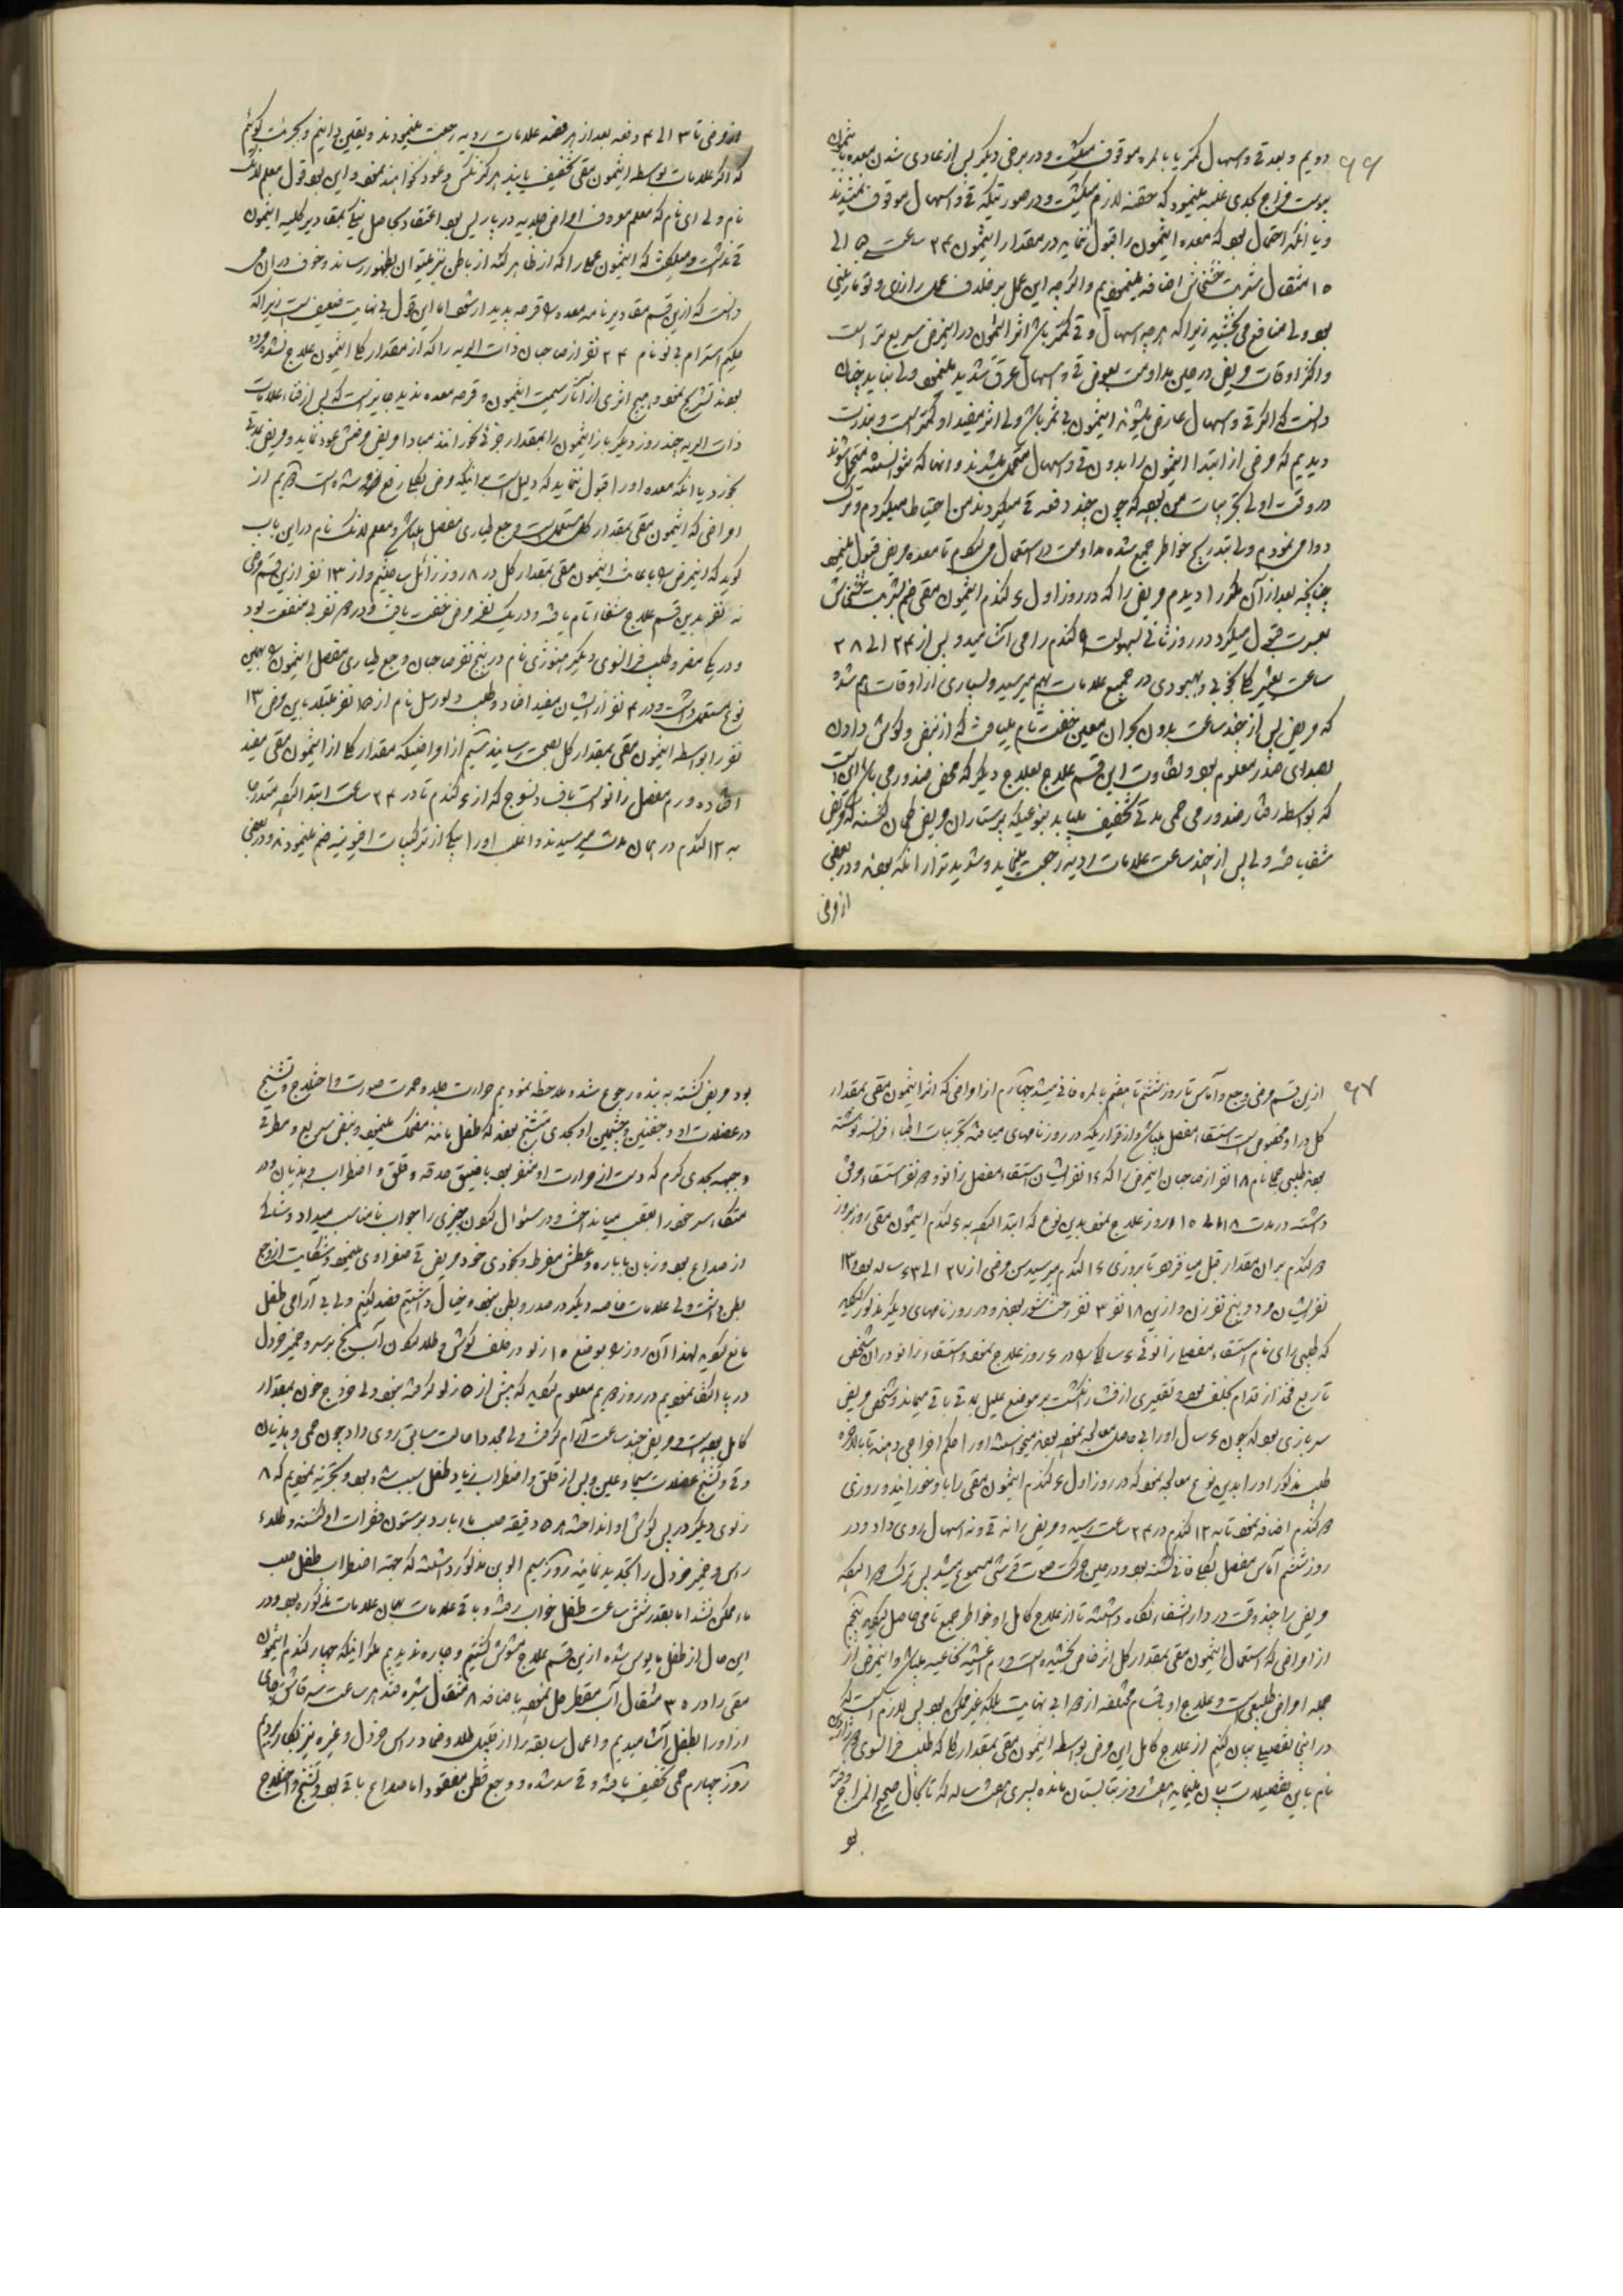 ۶۶
دویم و بعد قی و اسهال کمتر یا بالمره موقوف میکشت و در برخی دیگر پس از عادی شدن معده
یبوست مزاج بحدی غلبه مینمود که حقنه لازم میکشت و در صورتیکه قی و اسهال موقوف نمیشدند
و یا آنکه احتمال بود که معده انتیمون را قبول ننماید در مقدار انتیمون ۲۴ ساعت
۱۵ مثقال شربت خشخاش اضافه مینمودیم و اگرچه این عمل بر خلاف عمل رازوری و تومازینی
بود ولی منافع می بخشید زیرا که هرچه اسهال و قی کمتر باشد اثر انتیمون در این مرض سریع تر است
و اکثر اوقات مریض در حین مداومت بعوض قی و اسهال عرق شدید مینمود ولی نباید چنان
دانست که اگر قی و اسهال عارض میشوند انتیمون بی ثمر باشد ولی اثر مفید او کمتر است و بندرت
دیدیم که مرضی از ابتدا انتیمون را بدون قی و اسهال متحمل میشدند و آنها که نتوانستند متحمل شوند
در وقت اول تجربیات من بود که چون چند دفعه قی میکردند من احتیاط میکردم و ترک
دوا می نمودم ولی بتدریج خواطر جمع شده مداومت در استعمال می نمودم تا معده مریض قبول مینمود
چنانچه بعد از آن مکرر دیدم مریض را که در روز اول ۶ گندم انتیمون مقئ ضم بشربت خشخاش
بعسرت قبول میکرد در روز ثانی بسهولت ۹ گندم را می آشامید و پس از ۲۴ الی ۲۸
ساعت تغییر کلی بخوبی و بهبودی در جمیع علامات بهم میرسید و بسیاری از اوقات هم شده
که مریض پس از چند ساعت بدون بحران معین خفت تام مییافت که از نبض و گوش دادن
بصدای صدر معلوم بود و تفاوت این قسم علاج بعلاج دیگر که محض فصد و رمی باشد این است
که بواسطه رفتار ضد ورمی حمی مدتی تخفیف مییابد بنوعیکه پرستاران مریض گمان کنند که مریض
شفا یافته ولی پس از چند ساعت علامات ردیه رجعت مینماید و شدیدتر از آنکه بودند و در بعضی
از مرضی
از مرضی تا ۳ الی ۴ دفعه بعد از هر فصد علامات ردیه رجعت مینمودند و یقین دانیم و بجرئت گوئیم
که اگر علامات بواسطه انتیمون مقئ تخفیف یابند هرگز نکس و عود نخواهند نمود و این بود قول معلم لانک
نام ولی ای نام که معلم معروف امراض جلدیه در پاریس بود اعتقاد بحاصل نیک بمقادیر کلیه انتیمون
نداشت و میگفت که انتیمون عملی را که از ظاهر کند از باطن نیز میتوان بظهور رساند و خوف در آن می
دانست که ازین قسم مقادیر نامه معده را قرحه پدیدار شود اما این قول بی نهایت ضعیف است زیرا که
حکیم استرام بی نو نام ۲۴ نفر از صاحبان ذات الریه را که از مقدار کل انتیمون علاج نشده مرده
بودند تشریح نمود و هیچ اثری از آثار سمیت انتیمون و قرحه معده ندید جایز است که پس از فناء علامات
ذات الریه چند روز دیگر باز انتیمون را بمقدار جزئی بخورانند مبادا مریض مرضش عود نماید و مریض مدتی
بخورد یا آنکه معده او را قبول ننماید که دلیل است بر اینکه مرض بکلی رفع شده است دویم از
امراضی که انتیمون مقئ بمقدار کل مستعمل است وجع طیاری مفصل میباشد و معلم لانک نام در این باب
گوید که اینمرض را باعانت انتیمون مقئ بمقدار کل در ۸ روز زائل ساختیم و از ۱۳ نفر ازین قسم مرضی
نه نفر بدین قسم علاج شفاء تام یافته و در یک نفر مرض خفت یافت و در ۳ نفر بی منفعت بود
و در یک سفر طبیب فرانسوی دیگر نام در پنج نفر صاحبان وجع طیاری مفصل انتیمون را بهمین
نوع مستعمل داشت و در ۴ نفر ازیشان مفید افتاد و طبیب دلورسل نام از ۱۵ نفر مبتلا باین مرض ۱۳
نفر را بواسطه انتیمون مقئ بمقدار کل بصحت رسانید سیم از امراضیکه مقدار کل از انتیمون مقئ مفید
افتاده ورم مفصل زانو است بنوعی که از ۶ گندم تا در ۲۴ ساعت ابتدا کرده متدرجا
به ۱۲ گندم در همان مدت میرسیدند و اغلب او را بیکی از ترکیبات افیونیه ضم مینمودند و در بعضی
۶۷
ازین قسم مرضی وجع و آماس تا روز ششم یا هفتم بالمره فانی میشد چهارم از امراضی که اثر انتیمون مقئ بمقدار
کل در او مخصوص است استسقاء مفصل میباشد و از قراریکه در روزنامهای میانه تجربیات اطباء فرانسه نوشته
بودند طبیبی نام ۱۸ نفر از صاحبان اینمرض را که ۱۶ نفر ایشان استسقاء مفصل زانو و ۲ نفر استسقاء مرفق
داشتند در مدت ۸ الی ۱۵ روز علاج نمود بدین نوع که ابتدا کرده به ۶ گندم انتیمون مقئ روز بروز
۲ گندم بر آن مقدار قبل میافزود تا بروزی ۱۶ گندم میرسید سن مرضی از ۲۷ الی ۶۳ ساله بود ۱۳
نفر ایشان مرد و پنج نفر زن و ازین ۱۸ نفر ۳ نفر بودند و در روزنامهای دیگر مذکور گردید
که طبیبی رای نام استسقاء مفصل زانوئی ۶ ساله را در ۶ روز علاج نمود و استسقاء زانو در آن شخص
تا ربع فخذ از قدام بخلف بود و تقعیری از فشار انگشت بر موضع علیل مدتی باقی میماند و شخص مریض
سربازی بود که چون ۶ سال او را بی حاصل معالجه نموده بودند میخواستند او را حکم اخراجی دهند تا بالاخره
طبیب مذکور او را بدین نوع معالجه نمود که در روز اول ۶ گندم انتیمون مقئ را باو خورانید و روزی
۲ گندم اضافه نمود تا به ۱۲ گندم در ۲۴ ساعت رسید و مریض را نه قی و نه اسهال روی داد و در
روز ششم آماس مفصل بکلی فانی گشته بود و در حین حرکت صوت قرشتی مسموع میشد پس ترک دوا کرده
مریض را چند وقت در دارالشفاء نگاه داشتند تا از علاج کامل او خواطر جمع تامی حاصل گردید پنجم
از امراضی که استعمال انتیمون مقئ بمقدار کل اثر خاص بخشیده است ورم اغشیه نخاعیه میباشد و اینمرض از
جمله امراض طبیعی است و علاج او باقسام مختلفه ازدوا بی نهایت بلکه غیر ممکن بود پس لازم است که
در اینجا تفصیلی بیان کنیم از علاج کامل این مرض بواسطه انتیمون مقئ بمقدار کل که طبیب فرانسوی
نام باین تفصیلات بیان مینماید هشت روز بتابستان مانده پسری هشت ساله که تا بحال صحیح المزاج
بو
بود مریض گشته به بنده رجوع شد و ملاحظه نمودیم حرارت جلد و حمرت صورت و اختلاج و تشنج
در عضلات او و جفنین و چشمین او بحدی متشنج بودند که طفل مانند مضحک مینمود و نبض سریع و مطرقی
و جبهه بحدی گرم که دست از حرارت او متنفر بود با ضیق حدقه و قلق و اضطراب و هذیان و در
متکاء سر خود را بعقب میانداخت و در سئوال نمودن چیزی را جواب نامناسب میداد و شاکی
از صداع بود و زبان با باره و عطش مفرط و بخودی خود مریض قی صفراوی مینمود و شکایت از وجع
بطن داشت ولی علامات خاصه دیگر در صدر و بطن نبود و خیال داشتیم فصد کنیم ولی بی آرامی طفل
مانع گردید لهذا آن روز را بوضع ۱۵ زلو در خلف گوش و طلا نمودن آب یخ بر سر و خمیر خردل
در پا اکتفا نمودیم در روز دویم معلوم گردید که بیش از ۵ زلو نگرفته بود ولی خروج خون بمقدار
کامل بوده است و مریض چند ساعت آرام گرفت ولی مجددا حالت سابق روی داد چون حمی و هذیان
و قی و تشنج عضلات سیما و عین و پس از قلق و اضطراب زیاد طفل سبب شده بود و تجربه نمودیم که ۸
زلوی دیگر در پس گوش او انداخته هر ۵ دقیقه صب ماء بارد بر ستون فقرات او گشته و طلاء
راس و خمیر خردل را تجدید نمایند روز سیم ابوین مذکور داشتند که جهته اضطراب طفل صب
ماء ممکن نشد اما بقدر شش ساعت طفل خواب رفته و باقی علامات همان علامات مذکوره بود و در
این حال از طفل مایوس شده ازین قسم علاج مشوش گشتیم و چاره ندیدیم مگر اینکه چهار گندم انتیمون
مقئ را در ۳۵ مثقال آب مقطر حل نموده باضافه ۸ مثقال شیره قند هر ساعت سه قاشق چای
از او را بطفل آشامیدیم و اعمال سابقه را از قبیل طلاء و ضماد راس خردل و غیره نیز بکار بردیم
روز چهارم حمی تخفیف یافته و قی سد شده و وجع بطن مفقود اما صداع باقی بود و تشنج و اختلاج